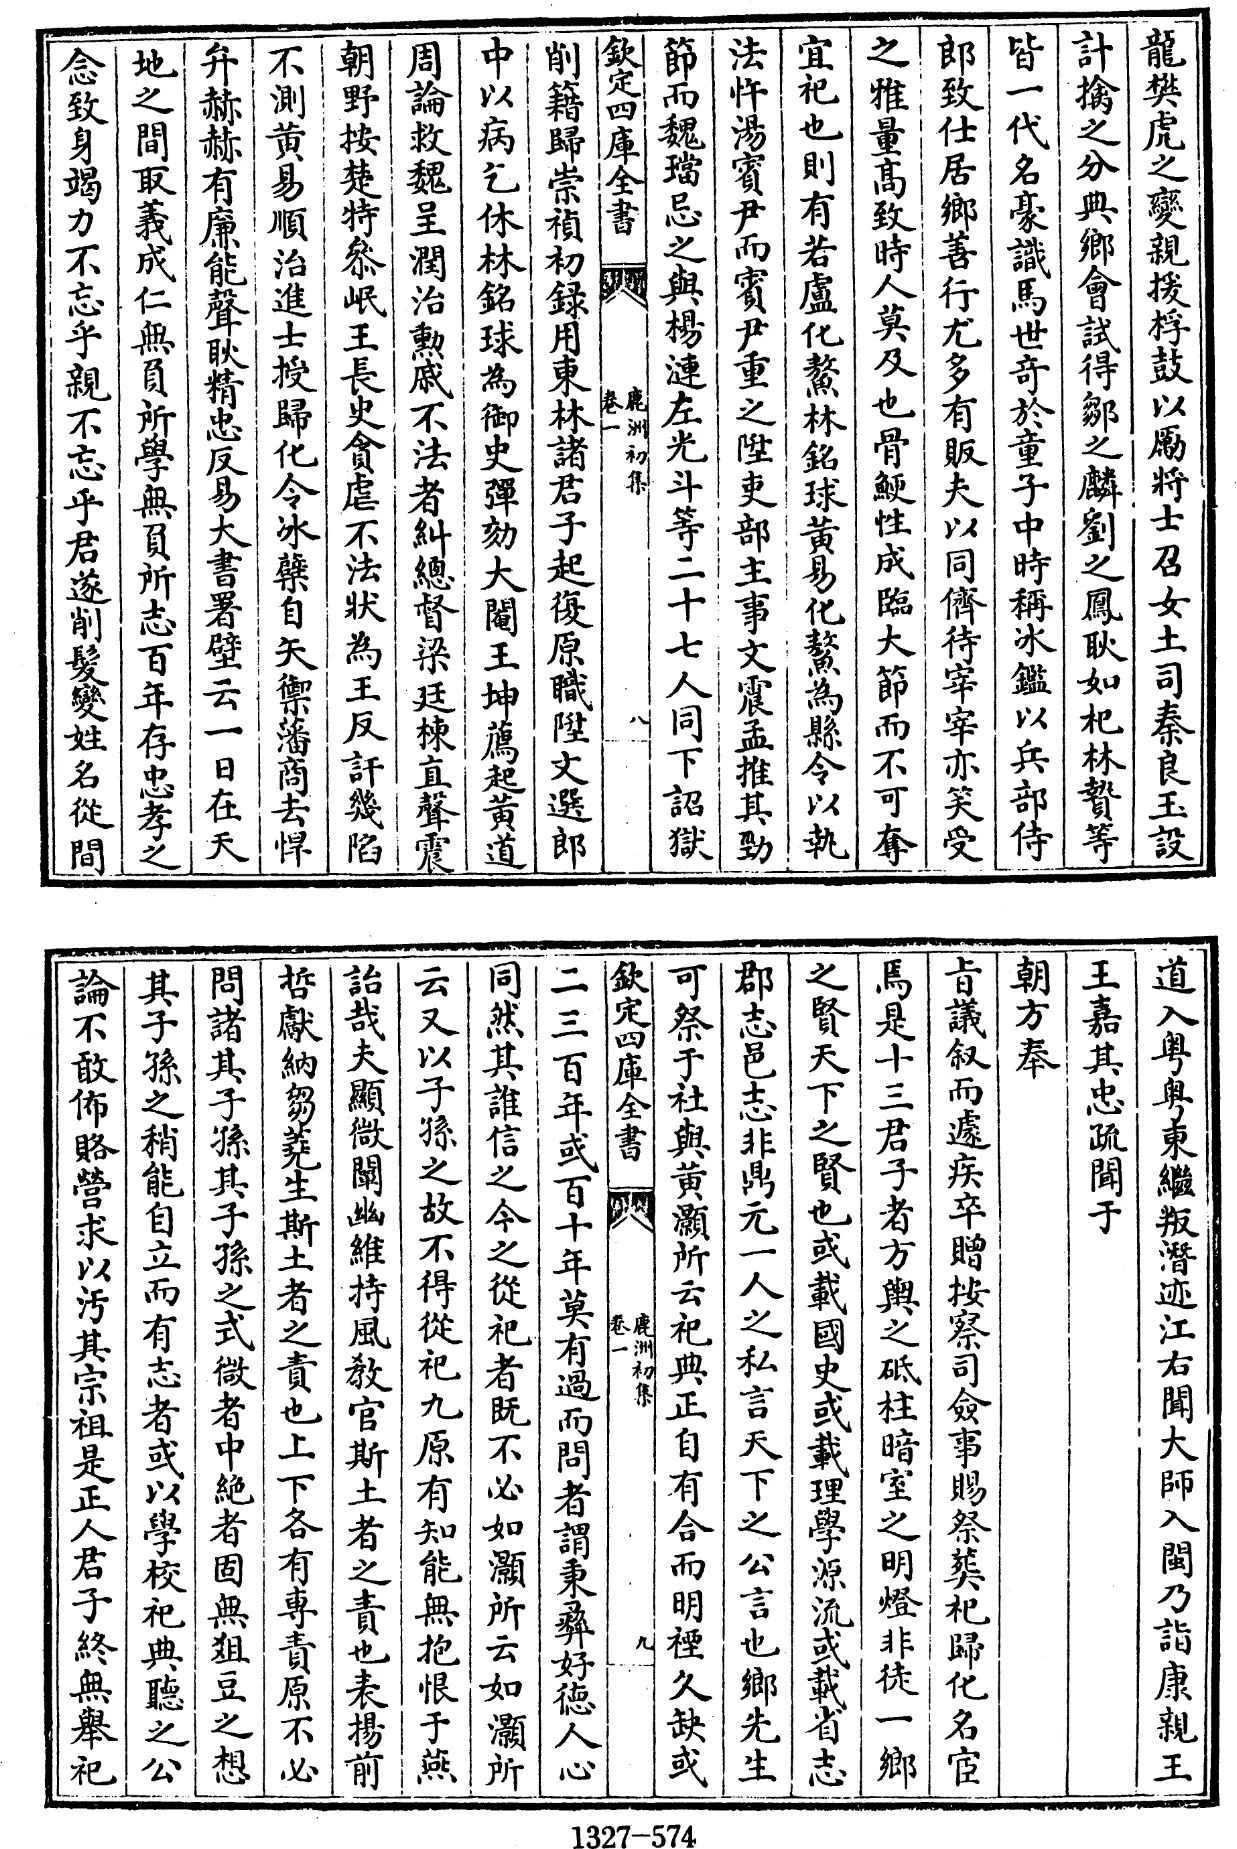 龍樊虎之變親援桴鼓以厲將士召女土司秦良玉設
計擒之分典鄉會試得鄒之麟劉之鳳耿如杞林贄等
皆一代名豪識馬世奇於童子中時稱冰鑑以兵部侍
郎致仕居鄉善行尤多有販夫以同儕待宰宰亦笑受
之雅量高致時人莫及也骨鯁性成臨大節而不可奪
宜祀也則有若盧化鰲林銘球黃易化鰲為縣令以執
法忤湯賓尹而賓尹重之陞吏部主事文震孟推其勁
節而魏璫忌之與楊漣左光斗等二十七人同下詔獄
欽定四庫全書
鹿洲初集
卷一
八
削籍歸崇禎初錄用東林諸君子起復原職陞文選郎
中以病乞休林銘球為御史彈劾大閹王坤薦起黃道
周論救魏呈潤治勳戚不法者糾總督梁廷棟直聲震
朝野按楚特叅岷王長史貪虐不法狀為王反訐幾陷
不測黃易順治進士授歸化令冰櫱自矢禦藩商去悍
弁赫赫有廉能聲耿精忠反易大書署壁云一日在天
地之間取義成仁無負所學無負所志百年存忠孝之
念致身竭力不忘乎親不忘乎君遂削髮變姓名從間
道入粵粵東繼叛潛迹江右聞大師入閩乃詣康親王
王嘉其忠疏聞于
朝方奉
旨議叙而遽疾卒贈按察司僉事賜祭葬祀歸化名宦
焉是十三君子者方輿之砥柱暗室之明燈非徒一鄉
之賢天下之賢也或載國史或載理學源流或載省志
郡志邑志非鼎元一人之私言天下之公言也鄉先生
可祭于社與黃灝所云祀典正自有合而明禋久缺或
欽定四庫全書
鹿洲初集
卷一
九
二三百年或百十年莫有過而問者謂秉彛好德人心
同然其誰信之今之從祀者既不必如灝所云如灝所
云又以子孫之故不得從祀九原有知能無抱恨于燕
詒哉夫顯微闡幽維持風教官斯土者之責也表揚前
哲獻納芻蕘生斯土者之責也上下各有專責原不必
問諸其子孫其子孫之式微者中絶者固無俎豆之想
其子孫之稍能自立而有志者或以學校祀典聽之公
論不敢佈賂營求以汚其宗祖是正人君子終無舉祀
1327-574